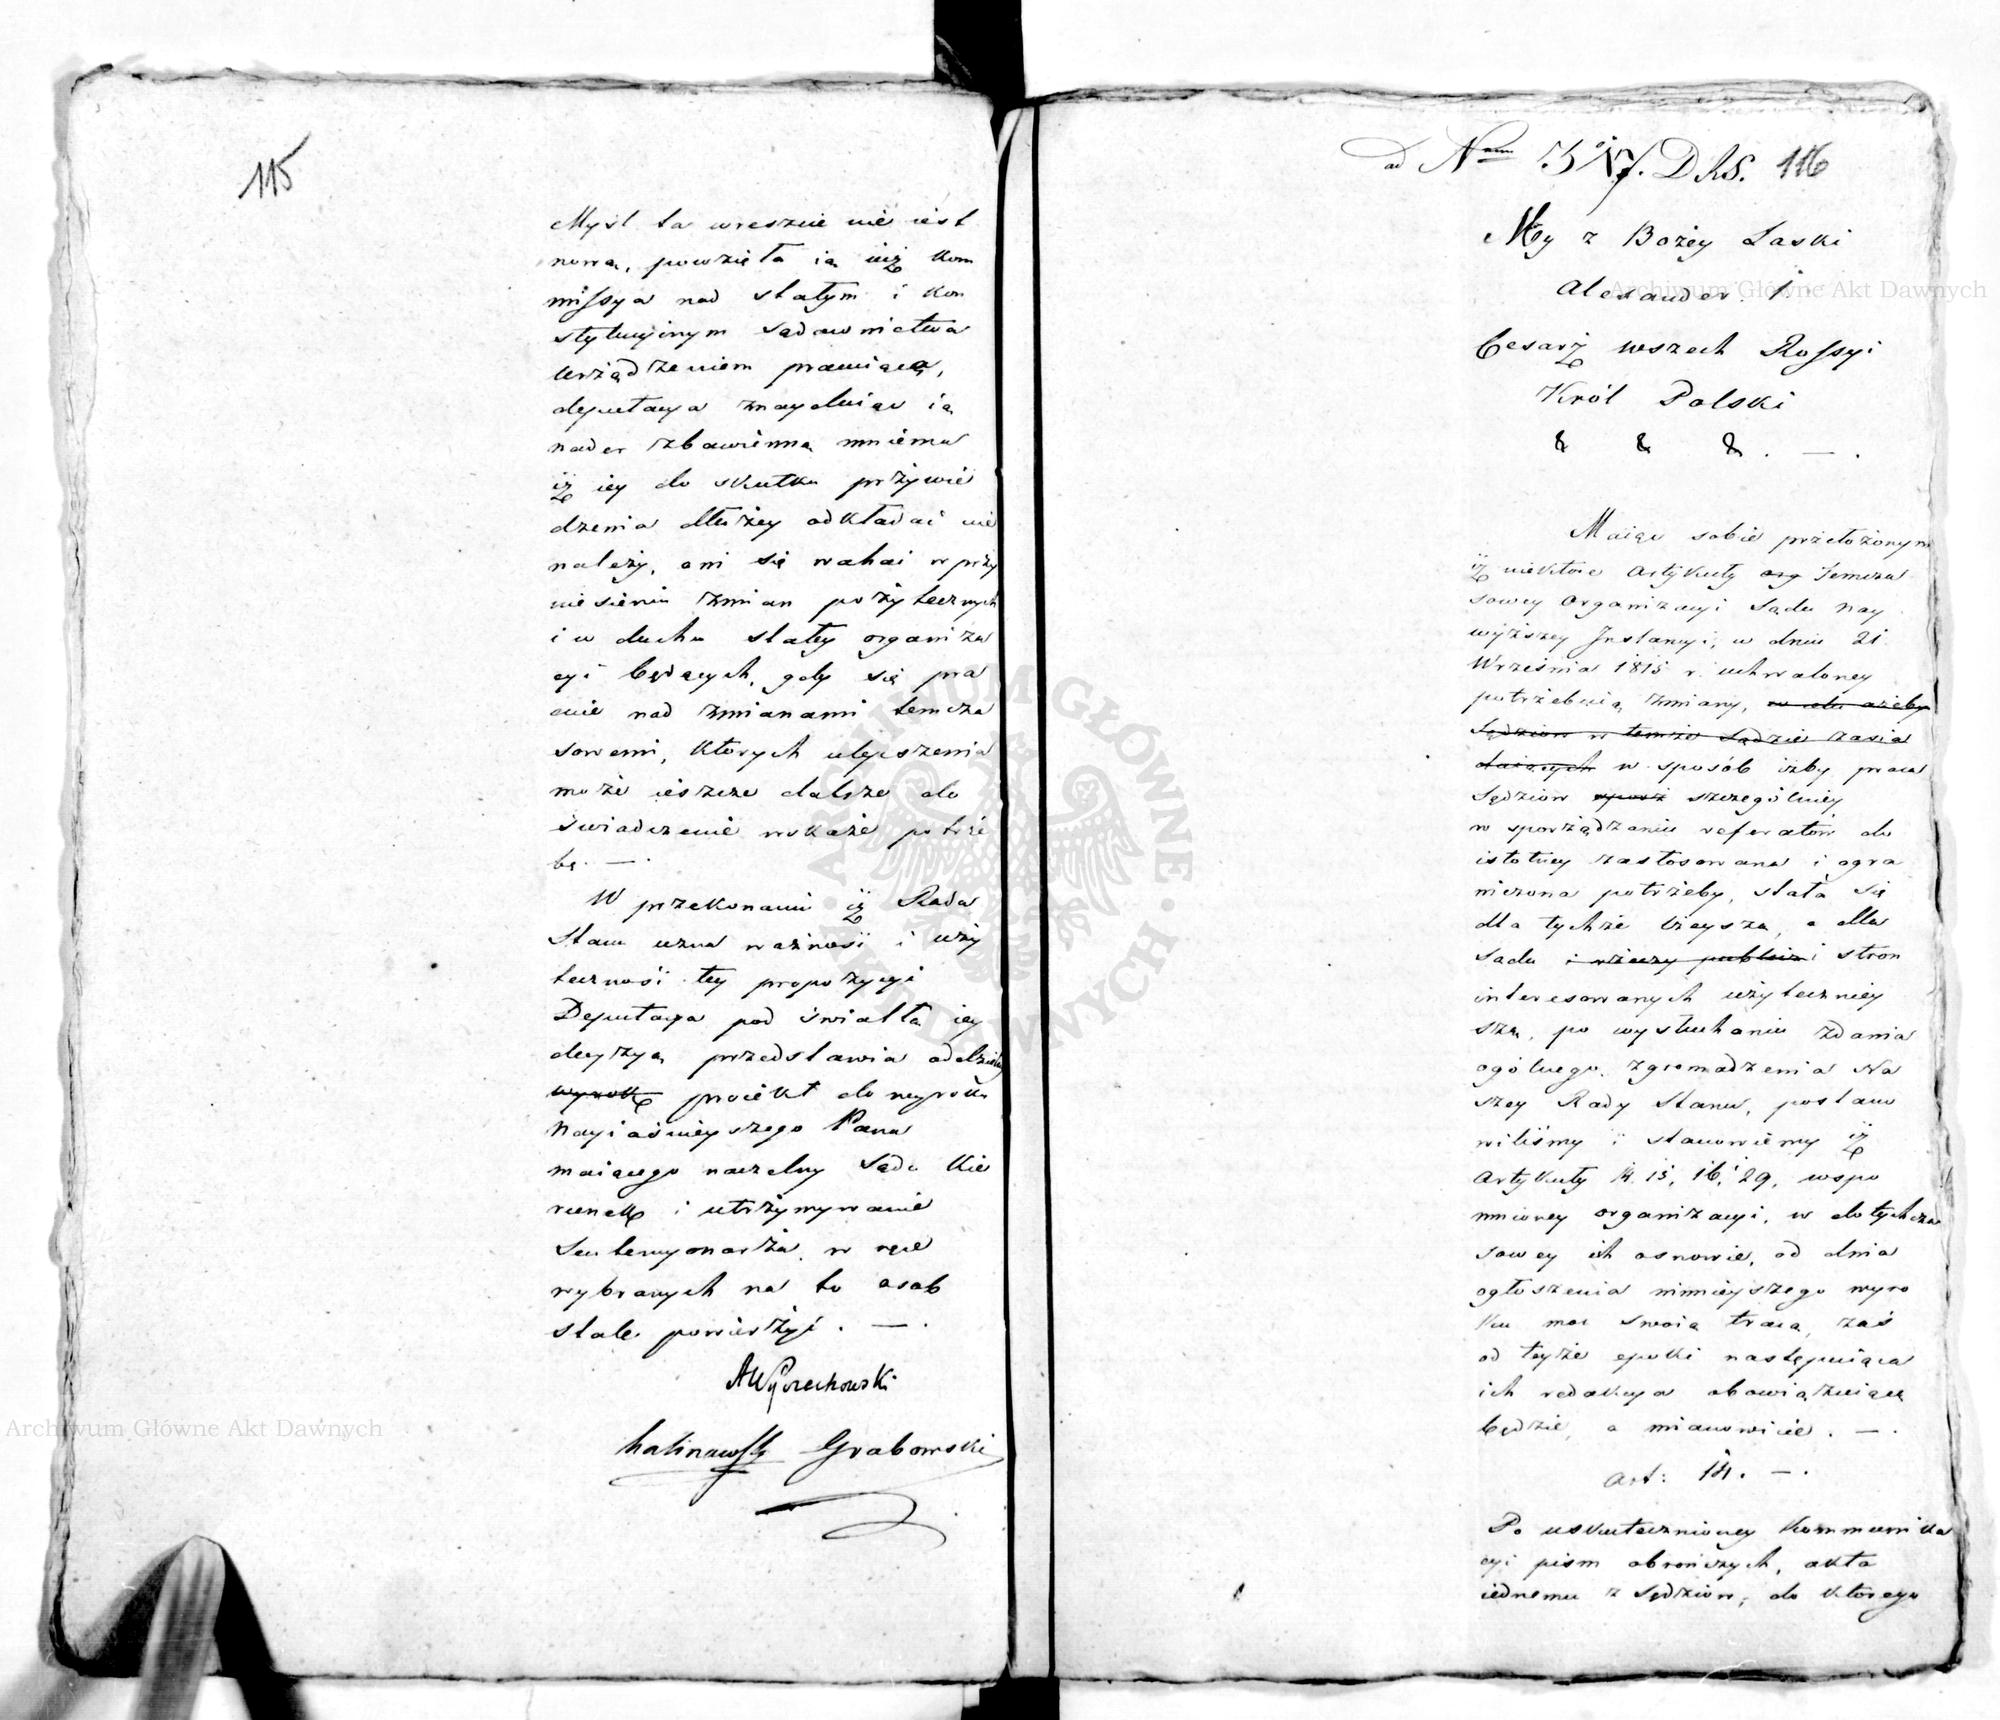 115
Myśl ta wreszcie nie iest
nową, powzięła ią iuż Kom
missya nad stałym i kon
stytucyinym sądownictwa
urządzeniem pracuiąca,
deputacya znayduiąc ią
nader zbawienną mniema
iż iey do skutku przywie
dzenia dłużey odkładać nie
należy, ani się wahać w przy
niesieniu zmian pożytecznych
i w duchu stałey organiza
cyi będących, gdy się pra
cuie nad zmianami temcza
sowemi, których ulepszenia
może ieszcze dalsze do
świadczenie wskaże potrze
bę. — .
W przekonaniu iż Rada
Stanu uzna ważność i uży
teczność tey propozycyi
Deputacya pod światłą iey
decyzyą przedstawia oddzielny
wyrok proiekt do wyroku
Nayiaśnieyszego Pana
maiącego naczelny Sądu kie
runek i utrzymywanie
Sentencyonarza w ręce
wybranych na to osób
stale powierzyć . — .
AWyczechowski
Kalinowski Grabowski
ad Num 317. D.R.S. 116
My z Bożey Łaski
Alexander I
Cesarz wszech Rossyi
Król Polski
& & & . — .
Maiąc sobie przełożonym
iż niektóre Artykuły org Temcza
sowey Organizacyi Sądu Nay
wyższey Instancyi, w dniu 21
Września 1815 r. uchwaloney
potrzebuią zmiany, w celu ażeby
Sędziów w temże Sądzie zasia
daiących w sposób iżby praca
Sędziów szczególniey
w sporządzaniu referatów do
istotney zastosowana i ogra
niczona potrzeby, stała się
dla tychże lżeysza, a dla
Sądu i rzeczy publiczn i stron
interesowanych użyteczniey
szą, po wysłuchaniu zdania
ogólnego zgromadzenia Na
szey Rady Stanu, postano
wiliśmy i stanowiemy iż
Artykuły 14. 15, 16, 29, wspo
mnioney organizacyi, w dotychcza
sowey ich osnowie, od dnia
ogłoszenia ninieyszego wyro
ku moc swoią tracą, zaś
od teyże epoki następuiąca
ich redakcya obowiązuiącą
będzie, a mianowicie . — .
Art: 14. — .
Po uskuteczonioney Kommunika
cyi pism obrończych, akta
iednemu z Sędziów, do którego
Archiwum Główne Akt Dawnych
Archiwum Główne Akt Dawnych
ARCHIWUM GŁÓWNE AKT DAWNYCH